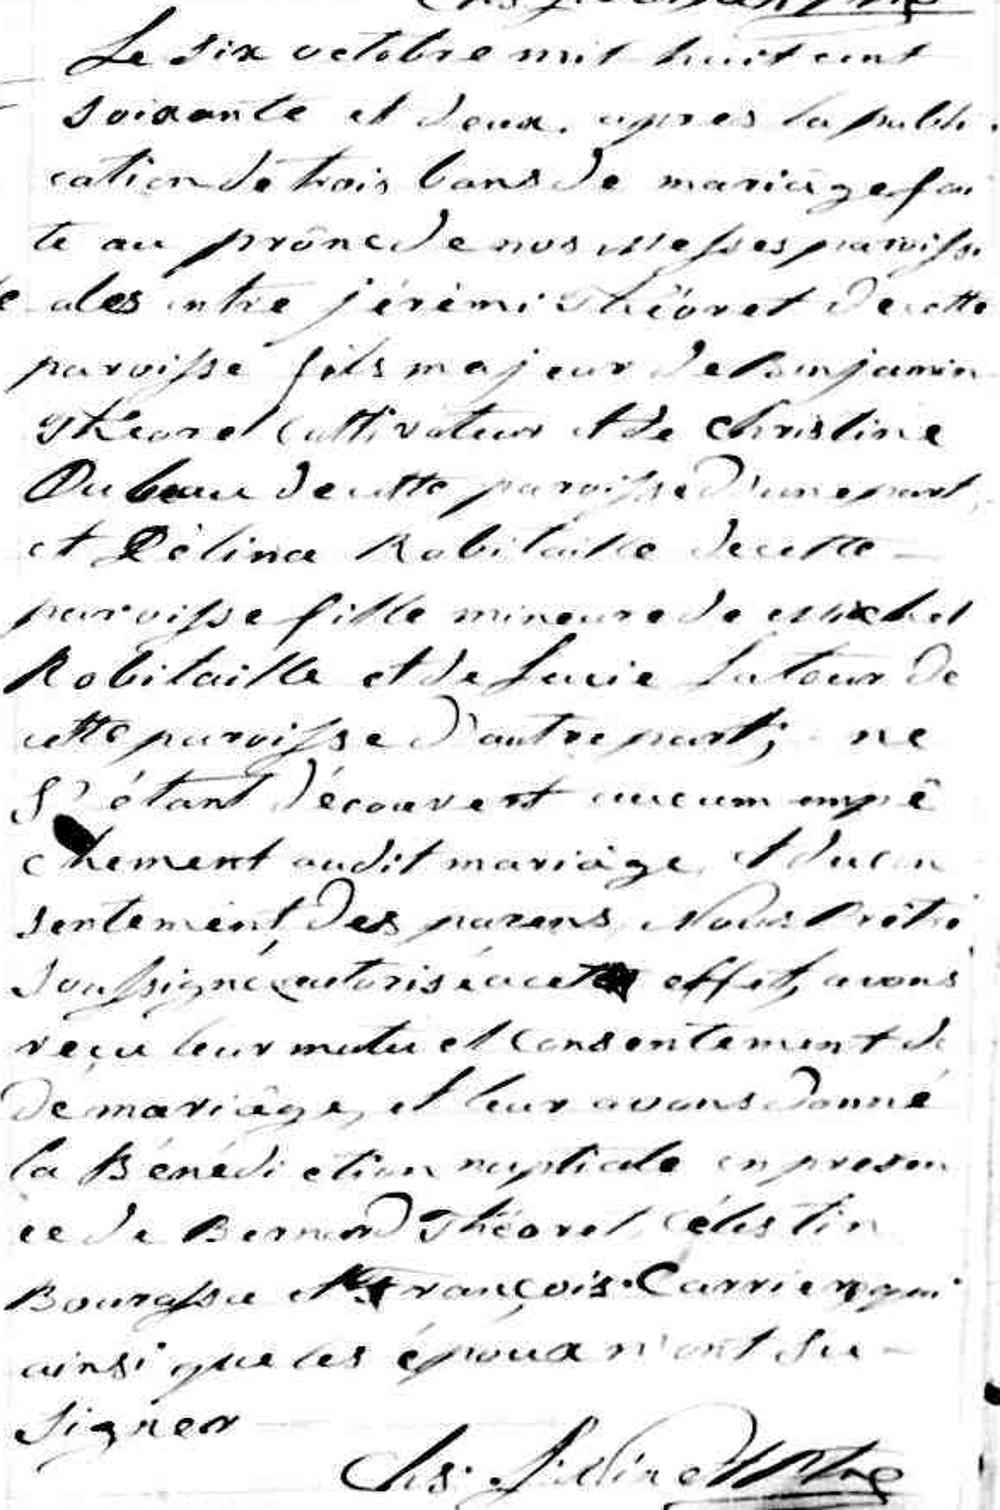 Le six octobre mil huit cent
soixante et deux, après la publi
cation de trois bans de mariâge fai
te au prône de nos Messes paroissi
ales entre jérémi Théoret de cette
paroisse fils majeur de Benjamin
Théoret Cultivateur et de Christine
Dubeau de cette paroisse d'une part,
et Délina Robitaille de cette
paroisse fille mineure de Michel
Robitaille et de Lucie Latour de
cette paroisse d'autre part; ne
s'étant découvert aucum empê
chement audit mariâge, et du con
sentement des parens, Nous Prêtre
Soussigné autorisé à cet effet, avons
reçu leur mutu el Consentement de
de mariâge, et leur avons donné
la Bénédiction nuptiale en presen
ce de Bernard Théoret, Célestin
Bourassa et François Carrier qui
ainsi que les époux n'ont su
signer
Chs. Ptre